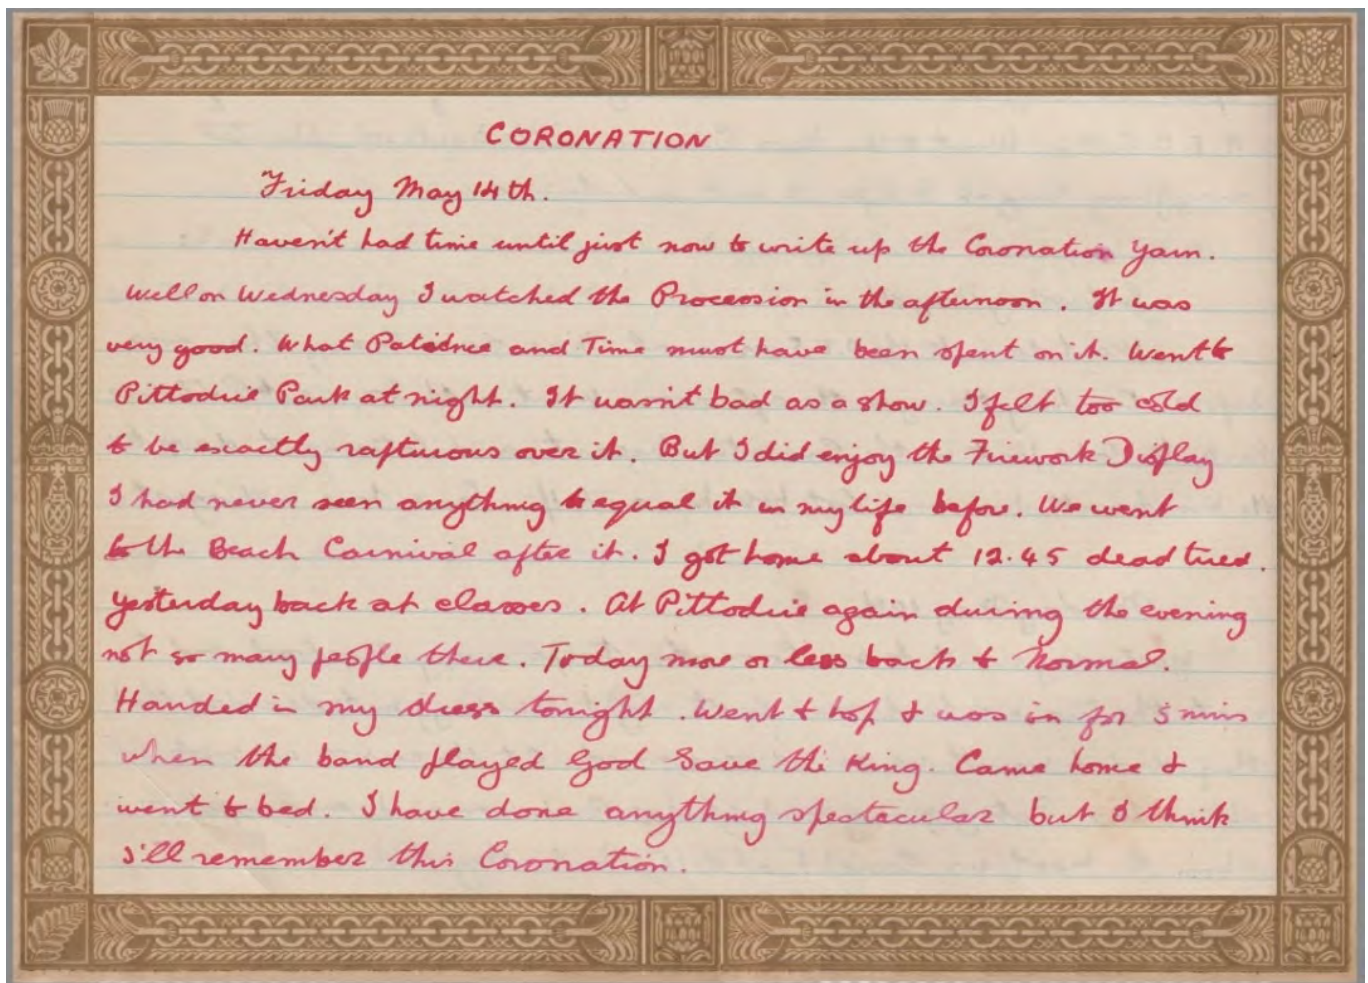 CORONATION
Friday May 14th.
Haven't had time until just now to write up the Coronation Yarn.
Well on Wednesday I watched the Procession in the afternoon. It was
very good. What Patience and Time must have been spent on it. Went to
Pittodrie Park at night. It wasn't bad as a show. I felt too cold
to be exactly rapturous over it. But I did enjoy the Firework Display
I had never seen anything to equal it in my life before. We went
to the Beach Carnival after it. I got home about 12.45 dead tired.
Yesterday back at classes. At Pittodrie again during the evening
not so many people there. Today more or less back to Normal.
Handed in my dress tonight. Went to hop & was in for 5 mins
when the band played God Save the King. Came home &
went to bed. I have done anything spectacular but I think
I'll remember this Coronation.